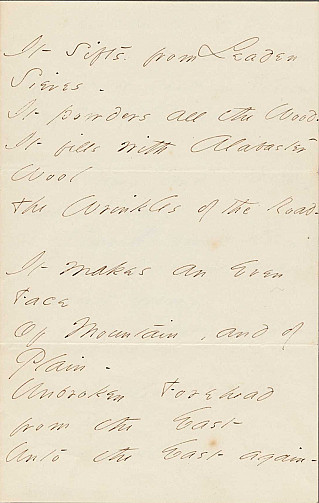 It sifts from Leaden
Sieves -
It powders all the Wood.
It fills with Alabaster
Wool
the Wrinkles of the Road -
It makes an Even
Face
Of Mountain, and of
Plain -
Unbroken Forehead
from the East
Unto the East again -